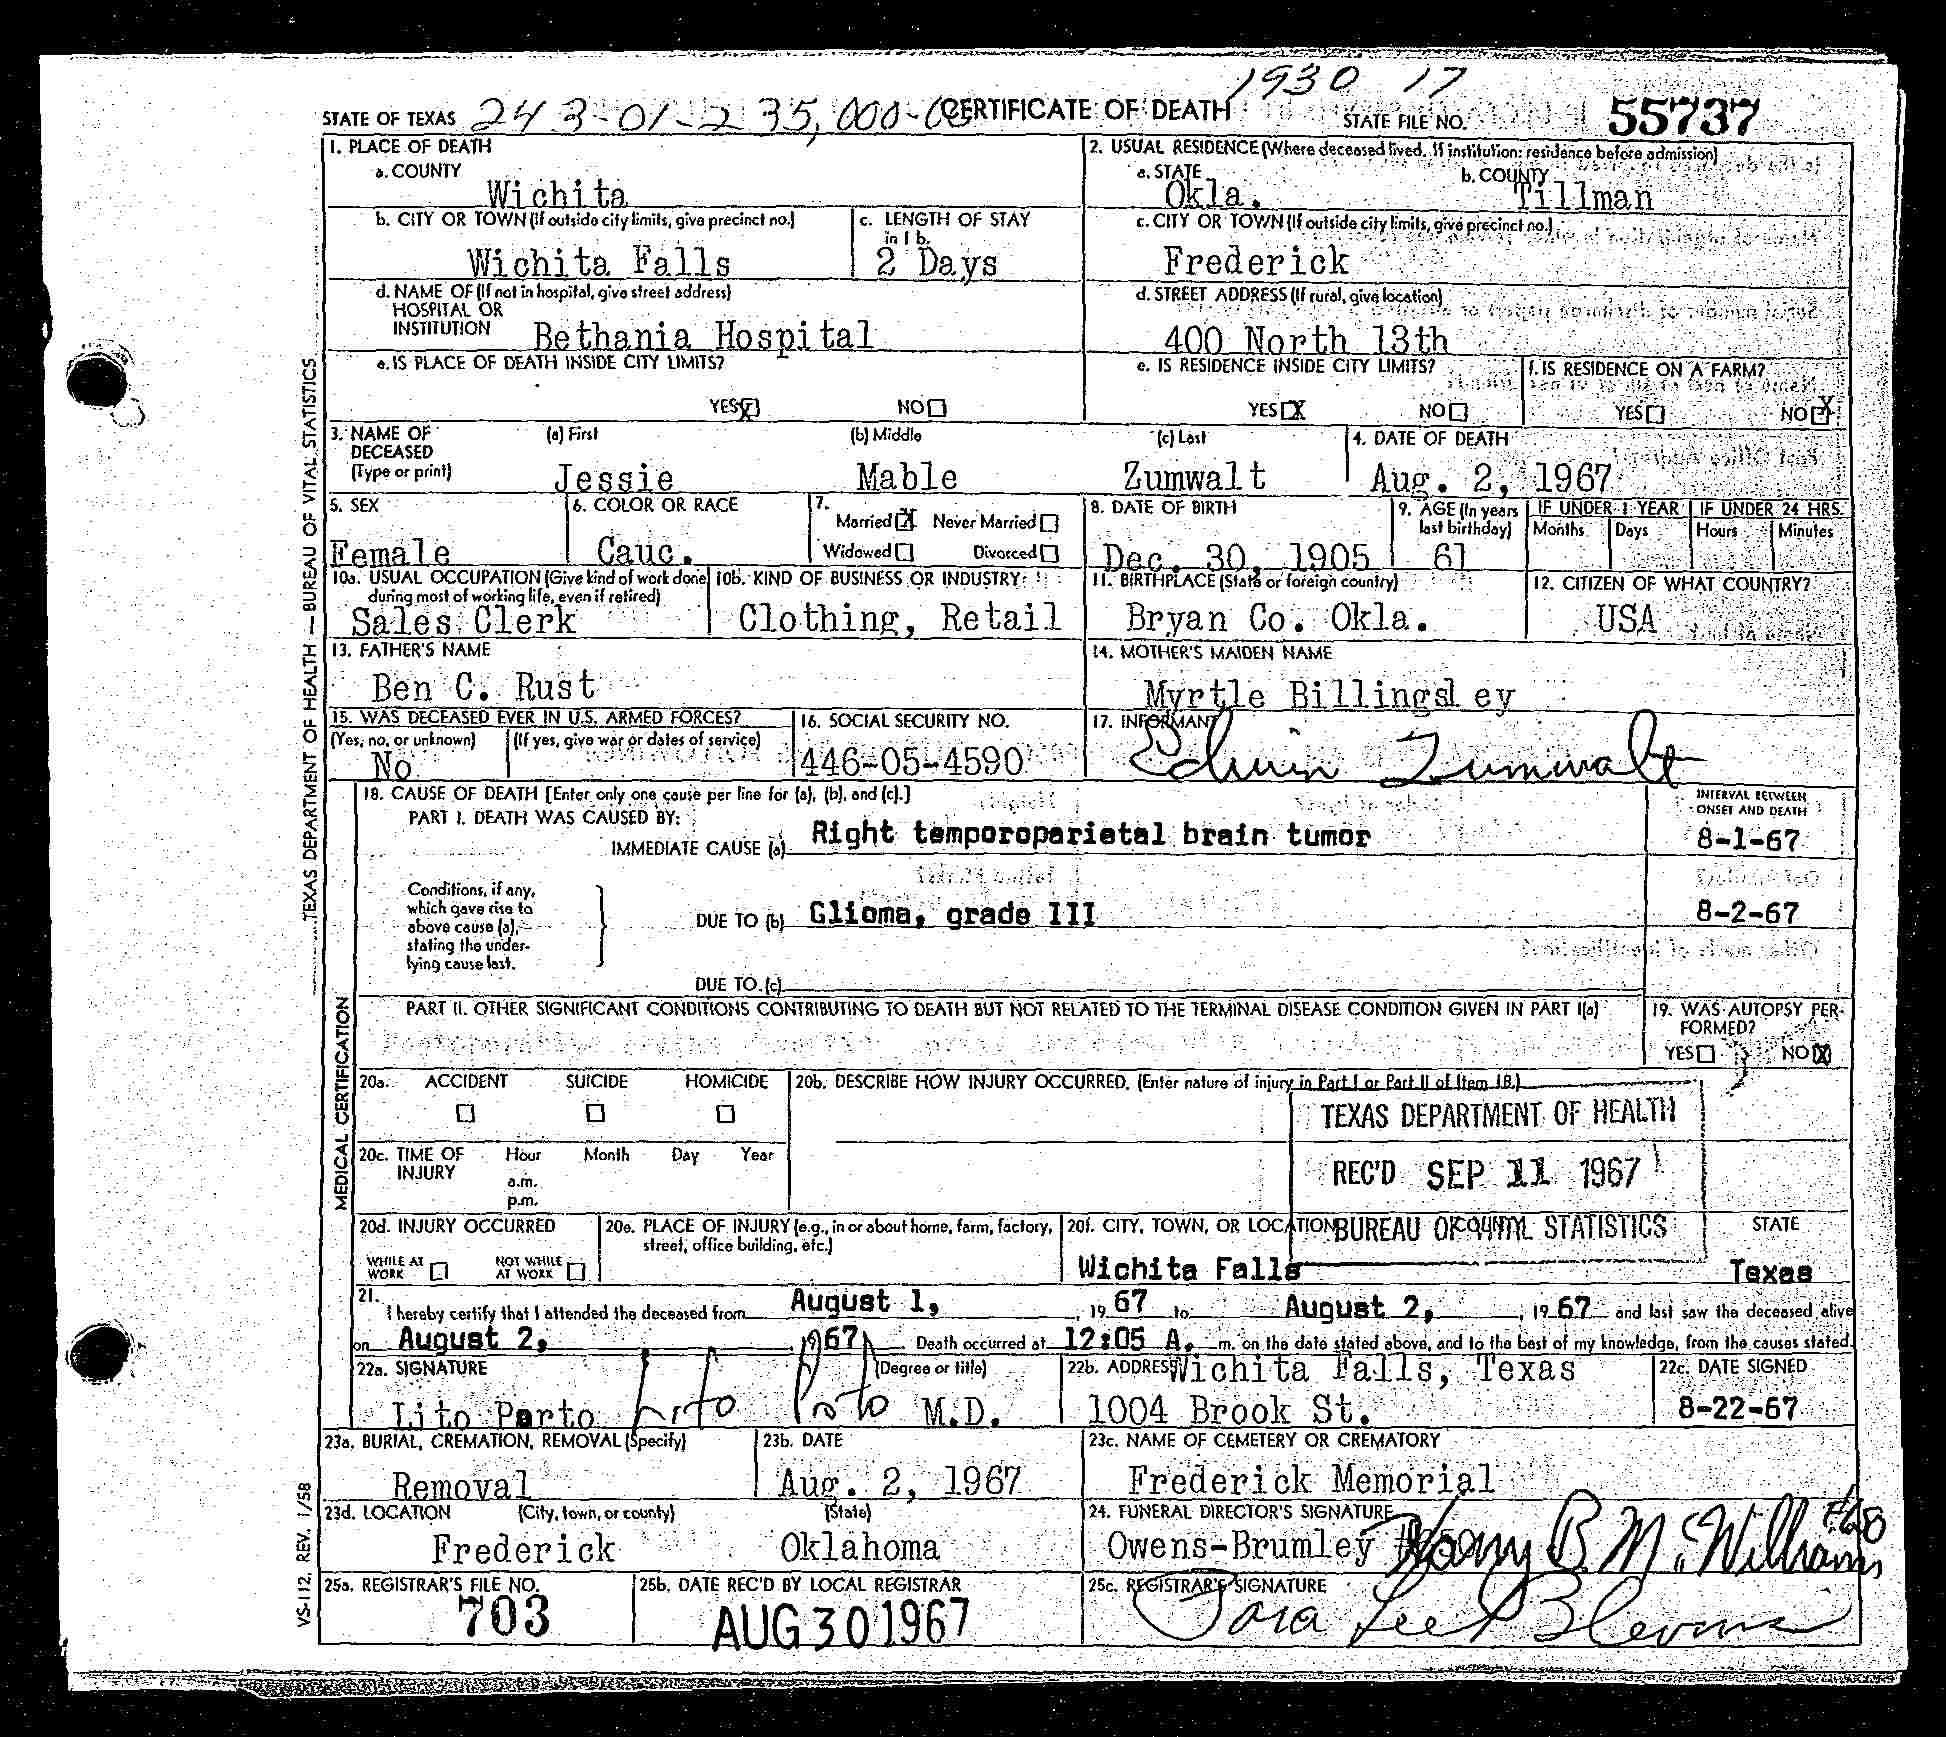 1930 17
STATE OF TEXAS 243-01-235,000-00 CERTIFICATE OF DEATH STATE FILE NO. 55737
1. PLACE OF DEATH
a. COUNTY
Wichita
2. USUAL RESIDENCE (Where deceased lived. If institution: residence before admission)
a. STATE b. COUNTY
Okla. Tillman
b. CITY OR TOWN (If outside city limits, give precinct no.)
Wichita Falls
c. LENGTH OF STAY
in 1 b.
2 Days
c. CITY OR TOWN (If outside city limits, give precinct no.)
Frederick
d. NAME OF (If not in hospital, give street address)
HOSPITAL OR
INSTITUTION Bethania Hospital
d. STREET ADDRESS (If rural, give location)
400 North 13th
e. IS PLACE OF DEATH INSIDE CITY LIMITS?
YES X NO
e. IS RESIDENCE INSIDE CITY LIMITS?
YES X NO
f. IS RESIDENCE ON A FARM?
YES NO X
3. NAME OF DECEASED (Type or print)
(a) First (b) Middle (c) Last
Jessie Mable Zumwalt
4. DATE OF DEATH
Aug. 2, 1967
5. SEX
Female
6. COLOR OR RACE
Cauc.
7.
Married X Never Married
Widowed Divorced
8. DATE OF BIRTH
Dec. 30, 1905
9. AGE (In years
last birthday)
61
IF UNDER 1 YEAR
Months Days
IF UNDER 24 HRS.
Hours Minutes
10a. USUAL OCCUPATION (Give kind of work done
during most of working life, even if retired)
Sales Clerk
10b. KIND OF BUSINESS OR INDUSTRY
Clothing, Retail
11. BIRTHPLACE (State or foreign country)
Bryan Co. Okla.
12. CITIZEN OF WHAT COUNTRY?
USA
13. FATHER'S NAME
Ben C. Rust
14. MOTHER'S MAIDEN NAME
Myrtle Billingsley
15. WAS DECEASED EVER IN U.S. ARMED FORCES?
(Yes, no, or unknown) (If yes, give war or dates of service)
No
16. SOCIAL SECURITY NO.
446-05-4590
17. INFORMANT
Edwin Zumwalt
18. CAUSE OF DEATH [Enter only one cause per line for (a), (b), and (c).]
PART I. DEATH WAS CAUSED BY:
IMMEDIATE CAUSE (a) Right temporoparietal brain tumor
INTERVAL BETWEEN
ONSET AND DEATH
8-1-67
Conditions, if any,
which gave rise to
above cause (a),
stating the under-
lying cause last.
DUE TO (b) Glioma, grade III
8-2-67
DUE TO (c)
PART II. OTHER SIGNIFICANT CONDITIONS CONTRIBUTING TO DEATH BUT NOT RELATED TO THE TERMINAL DISEASE CONDITION GIVEN IN PART I(a)
19. WAS AUTOPSY PER-
FORMED?
YES NO X
20a. ACCIDENT SUICIDE HOMICIDE
20b. DESCRIBE HOW INJURY OCCURRED. (Enter nature of injury in Part I or Part II of Item 18.)
TEXAS DEPARTMENT OF HEALTH
REC'D SEP 11 1967
BUREAU OF VITAL STATISTICS
20c. TIME OF INJURY Hour Month Day Year
a.m.
p.m.
20d. INJURY OCCURRED
WHILE AT WORK NOT WHILE AT WORK
20e. PLACE OF INJURY (e.g., in or about home, farm, factory,
street, office building, etc.)
20f. CITY, TOWN, OR LOCATION COUNTY STATE
Wichita Falls Texas
21. I hereby certify that I attended the deceased from August 1, 19 67 to August 2, 19 67 and last saw the deceased alive
on August 2, 1967. Death occurred at 12:05 A. m. on the date stated above, and to the best of my knowledge, from the causes stated.
22a. SIGNATURE (Degree or title)
Lito Porto Lito Porto M.D.
22b. ADDRESS Wichita Falls, Texas
1004 Brook St.
22c. DATE SIGNED
8-22-67
23a. BURIAL, CREMATION, REMOVAL (Specify)
Removal
23b. DATE
Aug. 2, 1967
23c. NAME OF CEMETERY OR CREMATORY
Frederick Memorial
23d. LOCATION (City, town, or county) (State)
Frederick Oklahoma
24. FUNERAL DIRECTOR'S SIGNATURE
Owens-Brumley Harry B. McWilliams
25a. REGISTRAR'S FILE NO.
703
25b. DATE REC'D BY LOCAL REGISTRAR
AUG 30 1967
25c. REGISTRAR'S SIGNATURE
Lee Blevins
TEXAS DEPARTMENT OF HEALTH — BUREAU OF VITAL STATISTICS
MEDICAL CERTIFICATION
VS-112, REV. 1/58